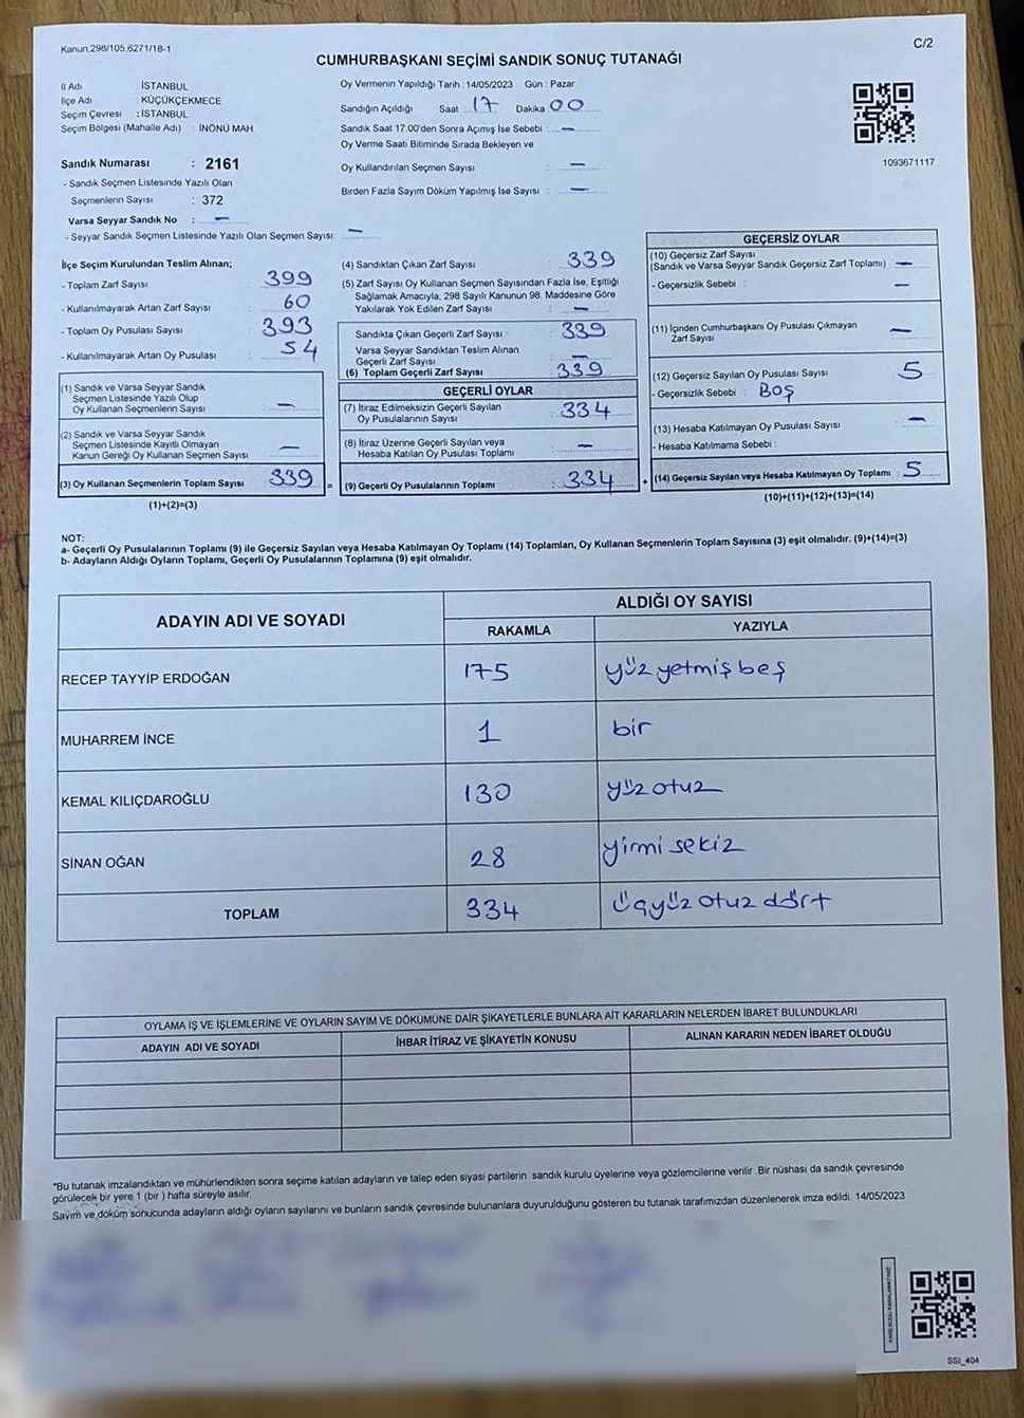 Kanun,298/105,6271/18-1
C/2
CUMHURBAŞKANI SEÇİMİ SANDIK SONUÇ TUTANAĞI
İl Adı : İSTANBUL
İlçe Adı : KÜÇÜKÇEKMECE
Seçim Çevresi : İSTANBUL
Seçim Bölgesi (Mahalle Adı) : İNÖNÜ MAH
Oy Vermenin Yapıldığı Tarih : 14/05/2023 Gün : Pazar
Sandığın Açıldığı Saat 17 Dakika 00
Sandık Saat 17.00'den Sonra Açımış İse Sebebi : —
Oy Verme Saati Bitiminde Sırada Bekleyen ve
Oy Kullandırılan Seçmen Sayısı : —
Birden Fazla Sayım Döküm Yapılmış İse Sayısı : —
1093671117
Sandık Numarası : 2161
- Sandık Seçmen Listesinde Yazılı Olan
Seçmenlerin Sayısı : 372
Varsa Seyyar Sandık No : —
- Seyyar Sandık Seçmen Listesinde Yazılı Olan Seçmen Sayısı: —
İlçe Seçim Kurulundan Teslim Alınan;
- Toplam Zarf Sayısı : 399
- Kullanılmayarak Artan Zarf Sayısı : 60
- Toplam Oy Pusulası Sayısı : 393
- Kullanılmayarak Artan Oy Pusulası : 54
(1) Sandık ve Varsa Seyyar Sandık
Seçmen Listesinde Yazılı Olup
Oy Kullanan Seçmenlerin Sayısı : —
(2) Sandık ve Varsa Seyyar Sandık
Seçmen Listesinde Kayıtlı Olmayan
Kanun Gereği Oy Kullanan Seçmen Sayısı —
(3) Oy Kullanan Seçmenlerin Toplam Sayısı 339 =
(1)+(2)=(3)
(4) Sandıktan Çıkan Zarf Sayısı : 339
(5) Zarf Sayısı Oy Kullanan Seçmen Sayısından Fazla İse, Eşitliği
Sağlamak Amacıyla, 298 Sayılı Kanunun 98. Maddesine Göre
Yakılarak Yok Edilen Zarf Sayısı : —
Sandıkta Çıkan Geçerli Zarf Sayısı : 339
Varsa Seyyar Sandıktan Teslim Alınan
Geçerli Zarf Sayısı : —
(6) Toplam Geçerli Zarf Sayısı : 339
GEÇERLİ OYLAR
(7) İtiraz Edilmeksizin Geçerli Sayılan
Oy Pusulalarının Sayısı : 334
(8) İtiraz Üzerine Geçerli Sayılan veya
Hesaba Katılan Oy Pusulası Toplamı : —
(9) Geçerli Oy Pusulalarının Toplamı : 334 +
GEÇERSİZ OYLAR
(10) Geçersiz Zarf Sayısı
(Sandık ve Varsa Seyyar Sandık Geçersiz Zarf Toplamı) : —
- Geçersizlik Sebebi : —
(11) İçinden Cumhurbaşkanı Oy Pusulası Çıkmayan
Zarf Sayısı —
(12) Geçersiz Sayılan Oy Pusulası Sayısı : 5
- Geçersizlik Sebebi : BOŞ
(13) Hesaba Katılmayan Oy Pusulası Sayısı : —
- Hesaba Katılmama Sebebi :
(14) Geçersiz Sayılan veya Hesaba Katılmayan Oy Toplamı : 5
(10)+(11)+(12)+(13)=(14)
NOT:
a- Geçerli Oy Pusulalarının Toplamı (9) ile Geçersiz Sayılan veya Hesaba Katılmayan Oy Toplamı (14) Toplamları, Oy Kullanan Seçmenlerin Toplam Sayısına (3) eşit olmalıdır. (9)+(14)=(3)
b- Adayların Aldığı Oyların Toplamı, Geçerli Oy Pusulalarının Toplamına (9) eşit olmalıdır.
ADAYIN ADI VE SOYADI
ALDIĞI OY SAYISI
RAKAMLA YAZIYLA
RECEP TAYYİP ERDOĞAN 175 yüz yetmiş beş
MUHARREM İNCE 1 bir
KEMAL KILIÇDAROĞLU 130 yüz otuz
SİNAN OĞAN 28 yirmi sekiz
TOPLAM 334 üçyüz otuz dört
OYLAMA İŞ VE İŞLEMLERİNE VE OYLARIN SAYIM VE DÖKÜMÜNE DAİR ŞİKAYETLERLE BUNLARA AİT KARARLARIN NELERDEN İBARET BULUNDUKLARI
ADAYIN ADI VE SOYADI İHBAR İTİRAZ VE ŞİKAYETİN KONUSU ALINAN KARARIN NEDEN İBARET OLDUĞU
*Bu tutanak imzalandıktan ve mühürlendikten sonra seçime katılan adayların ve talep eden siyasi partilerin sandık kurulu üyelerine veya gözlemcilerine verilir .Bir nüshası da sandık çevresinde
görülecek bir yere 1 (bir ) hafta süreyle asılır.
Sayım ve döküm sonucunda adayların aldığı oyların sayılarını ve bunların sandık çevresinde bulunanlara duyurulduğunu gösteren bu tutanak tarafımızdan düzenlenerek imza edildi. 14/05/2023
SSI_404